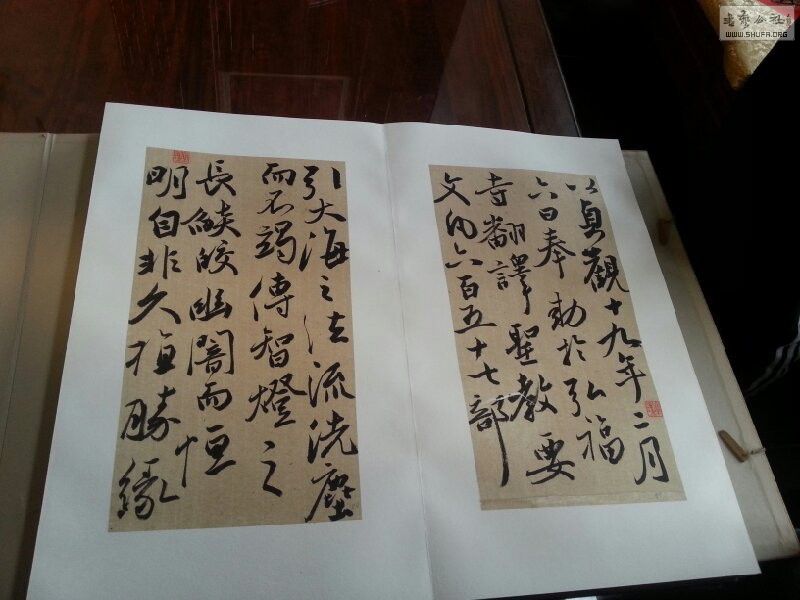 以貞觀十九年二月
六日奉勅於弘福
寺翻譯聖教要
文凡六百五十七部
引大海之法流洗塵
而不竭傳智燈之
長燄皎幽闇而恒
明自非久植勝緣
書藝公社
WWW.SHUFA.ORG